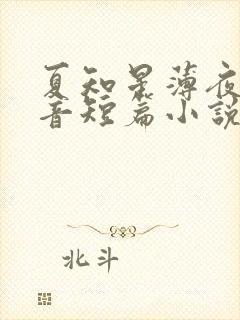 夏知星薄夜
音短篇小說
北斗